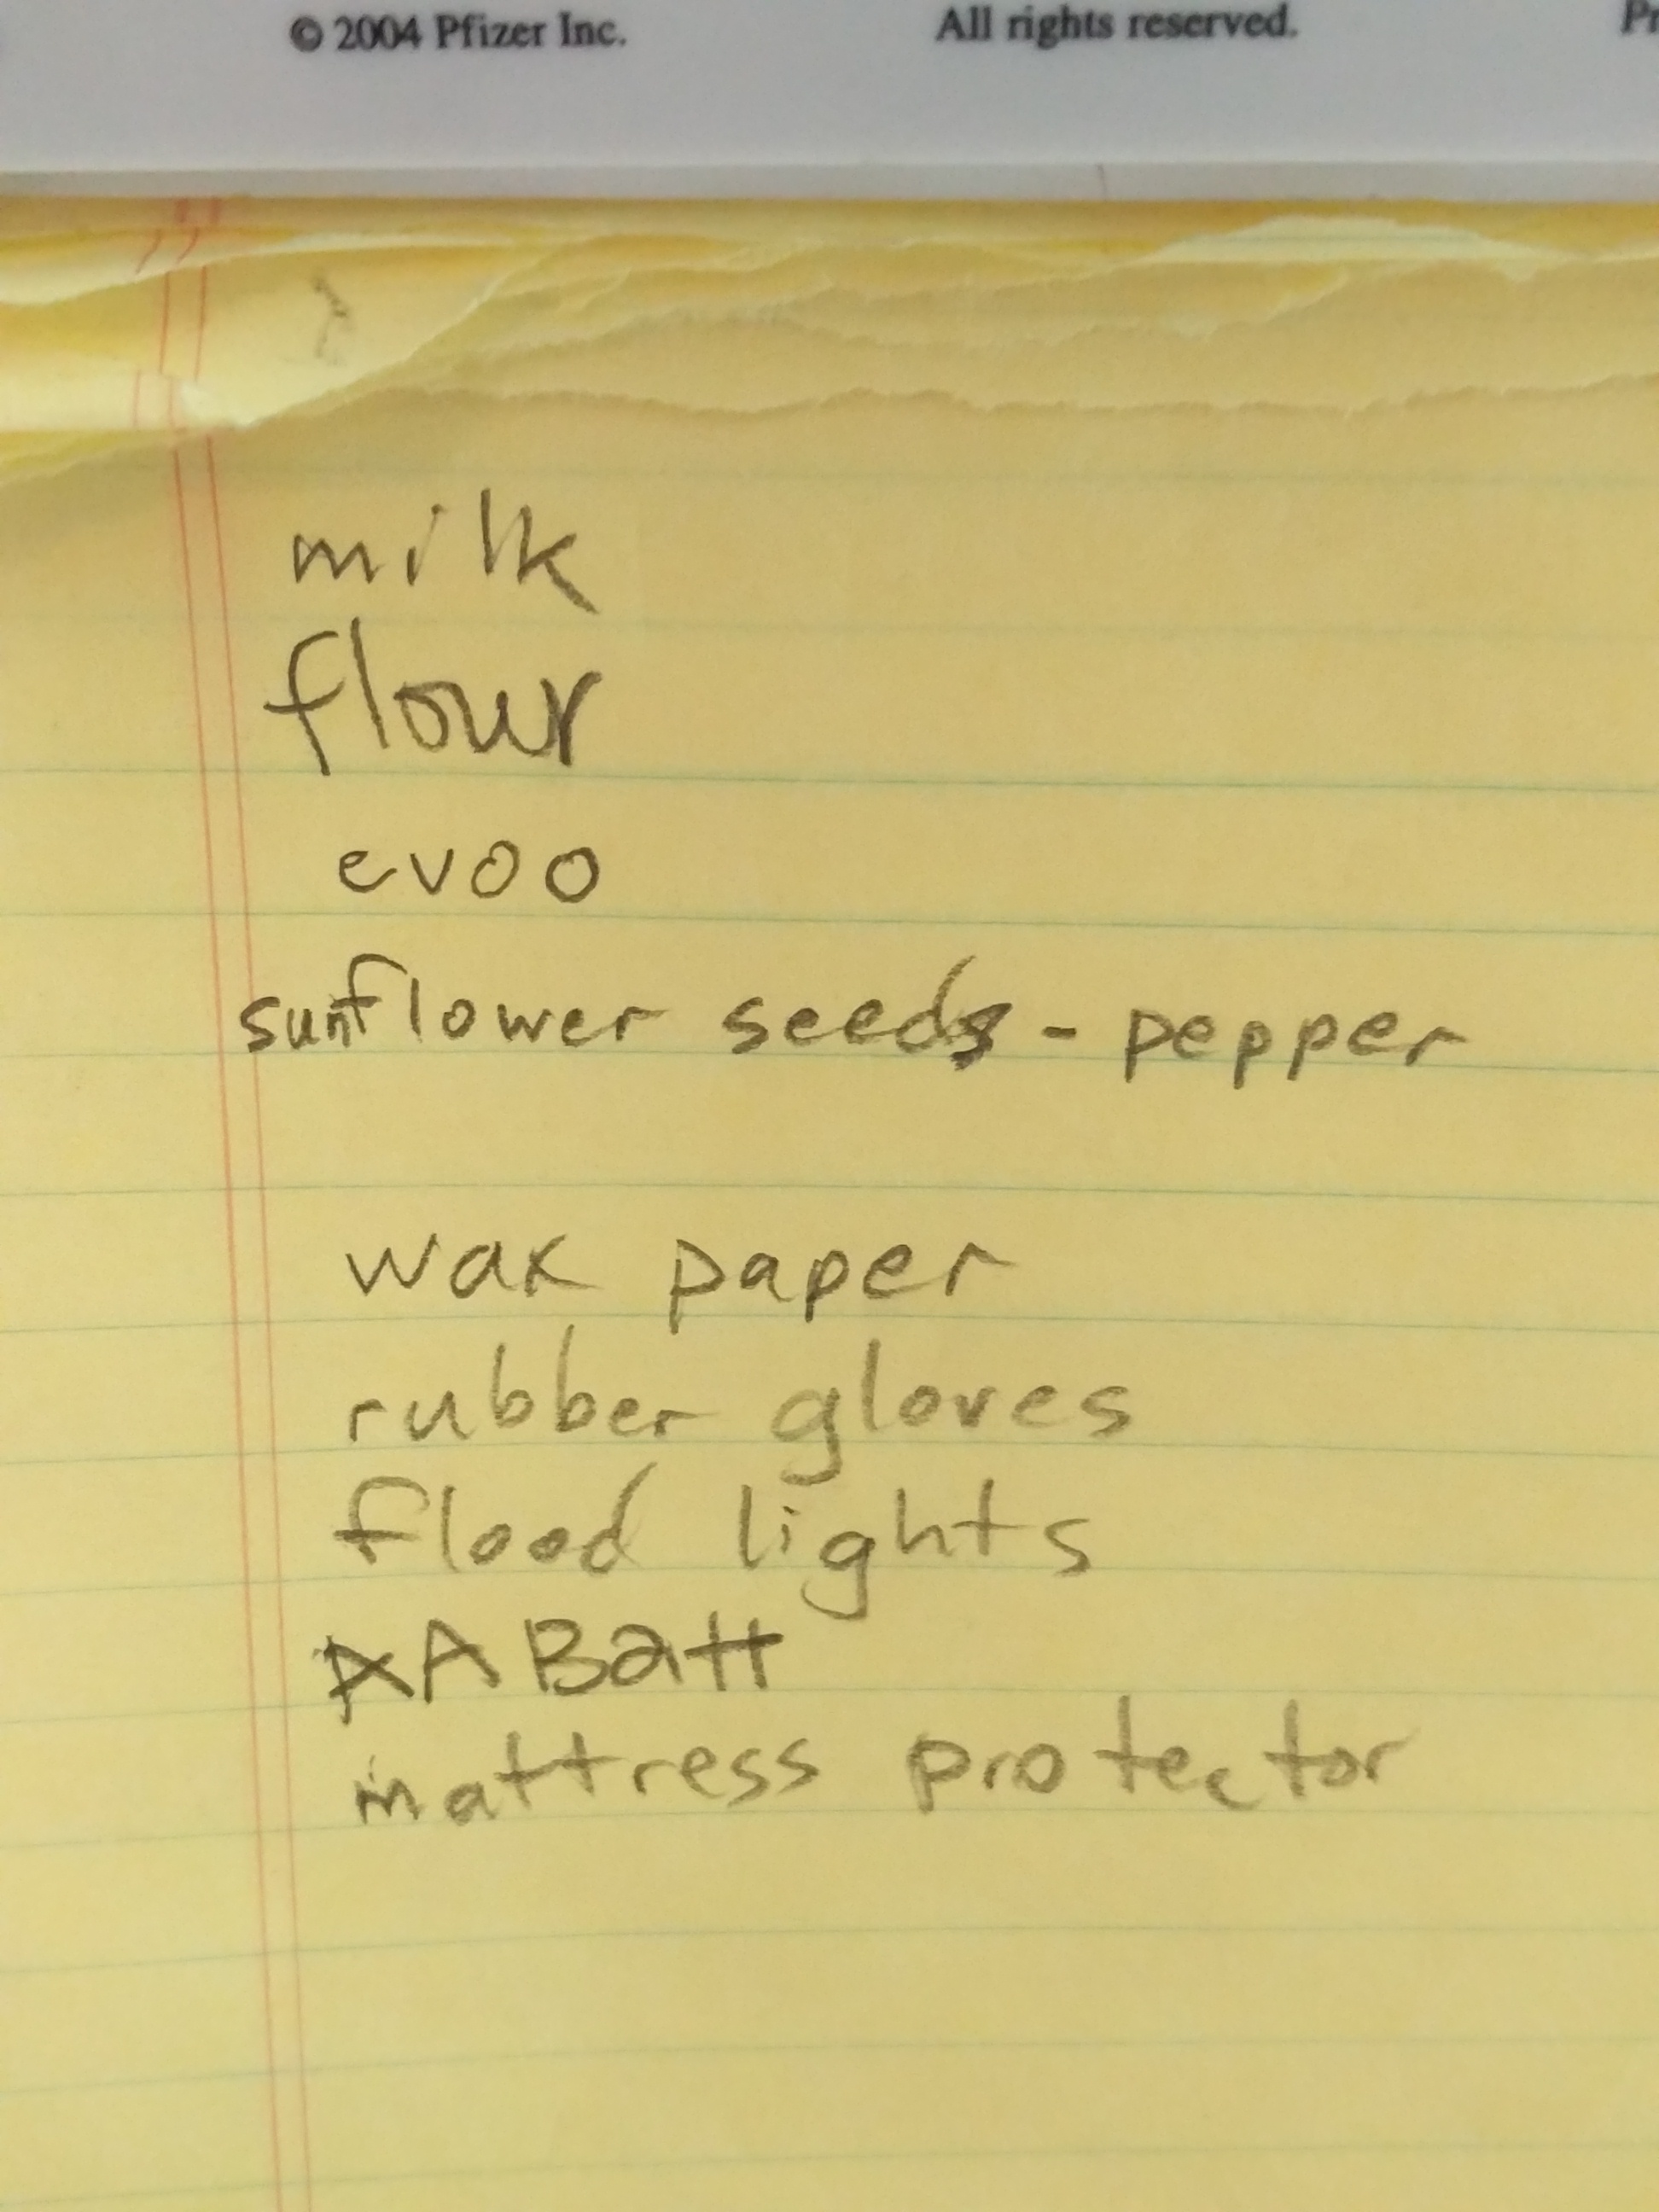 © 2004 Pfizer Inc. All rights reserved.
milk
flour
evoo
sunflower seeds - pepper
wax paper
rubber gloves
flood lights
AA Batt
mattress protector